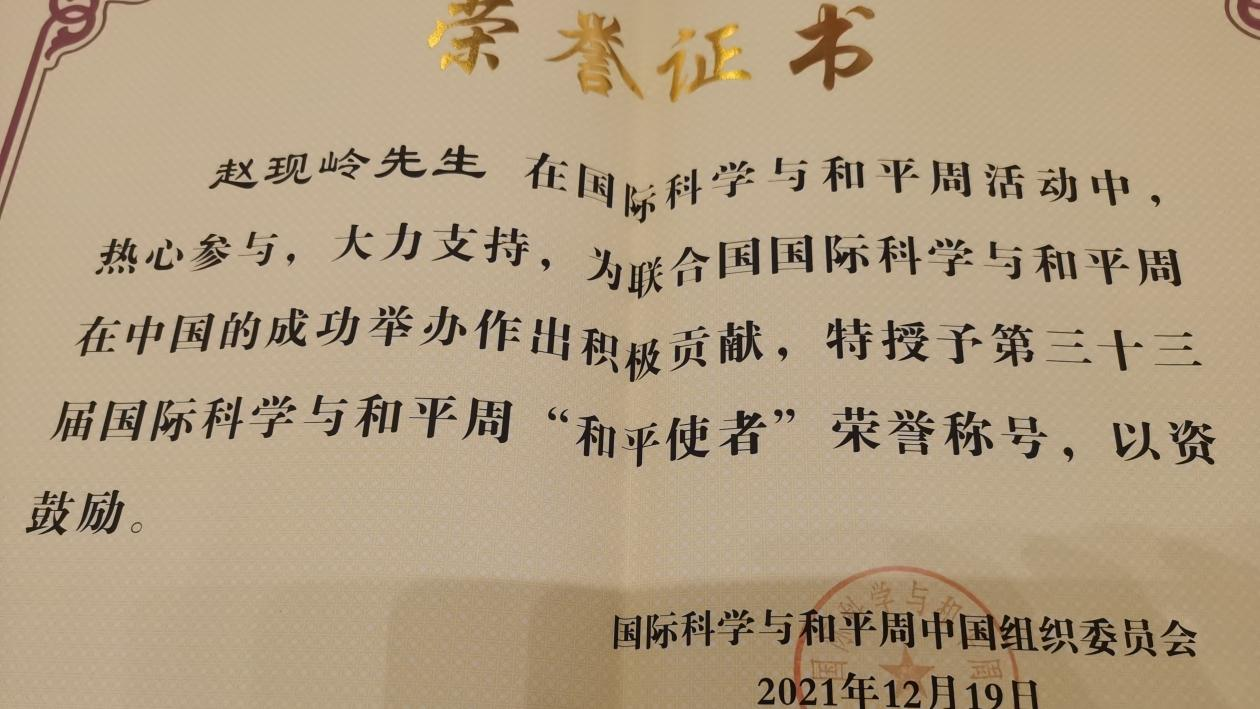 荣誉证书
赵现岭先生 在国际科学与和平周活动中，
热心参与，大力支持，为联合国国际科学与和平周
在中国的成功举办作出积极贡献，特授予第三十三
届国际科学与和平周“和平使者”荣誉称号，以资
鼓励。
国际科学与和平周中国组织委员会
2021年12月19日
国际科学与和
周